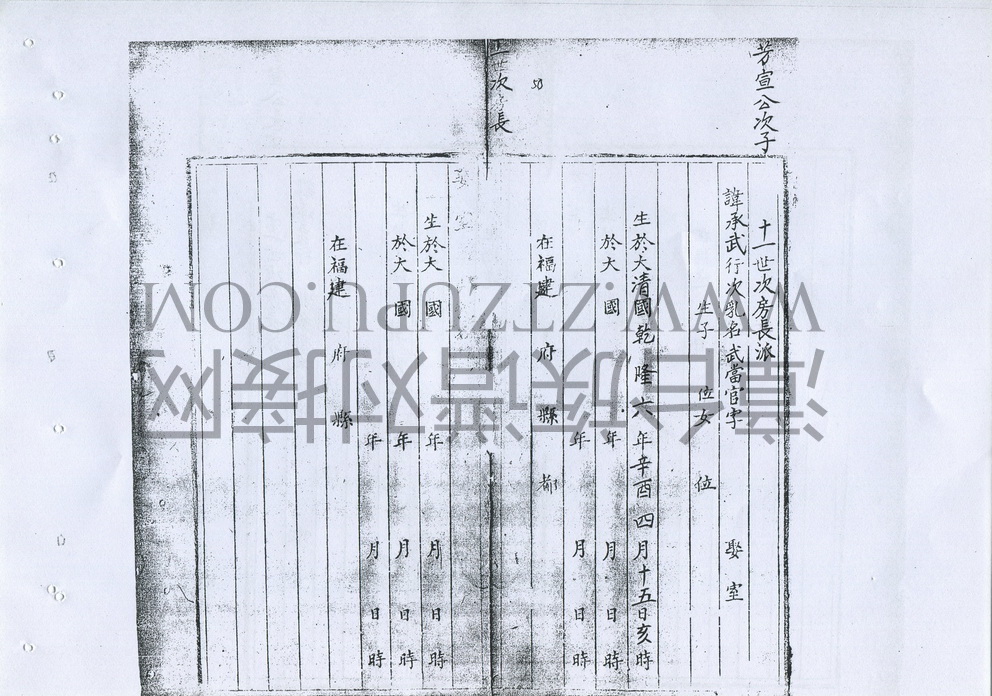 芳宣公次子
十一世次房長派
諱承武行次乳名武當官字 娶室
生子 位女 位
生於大清國乾隆六年辛酉四月十五日亥時
於大 國 年 月 日 時
年 月 日 時
在福建 府 縣 都
50
世次房長
娶室
生於大 國 年 月 日 時
於大 國 年 月 日 時
年 月 日 時
在福建 府 縣
漳台族谱对接网
WWW.ZTZUPU.COM